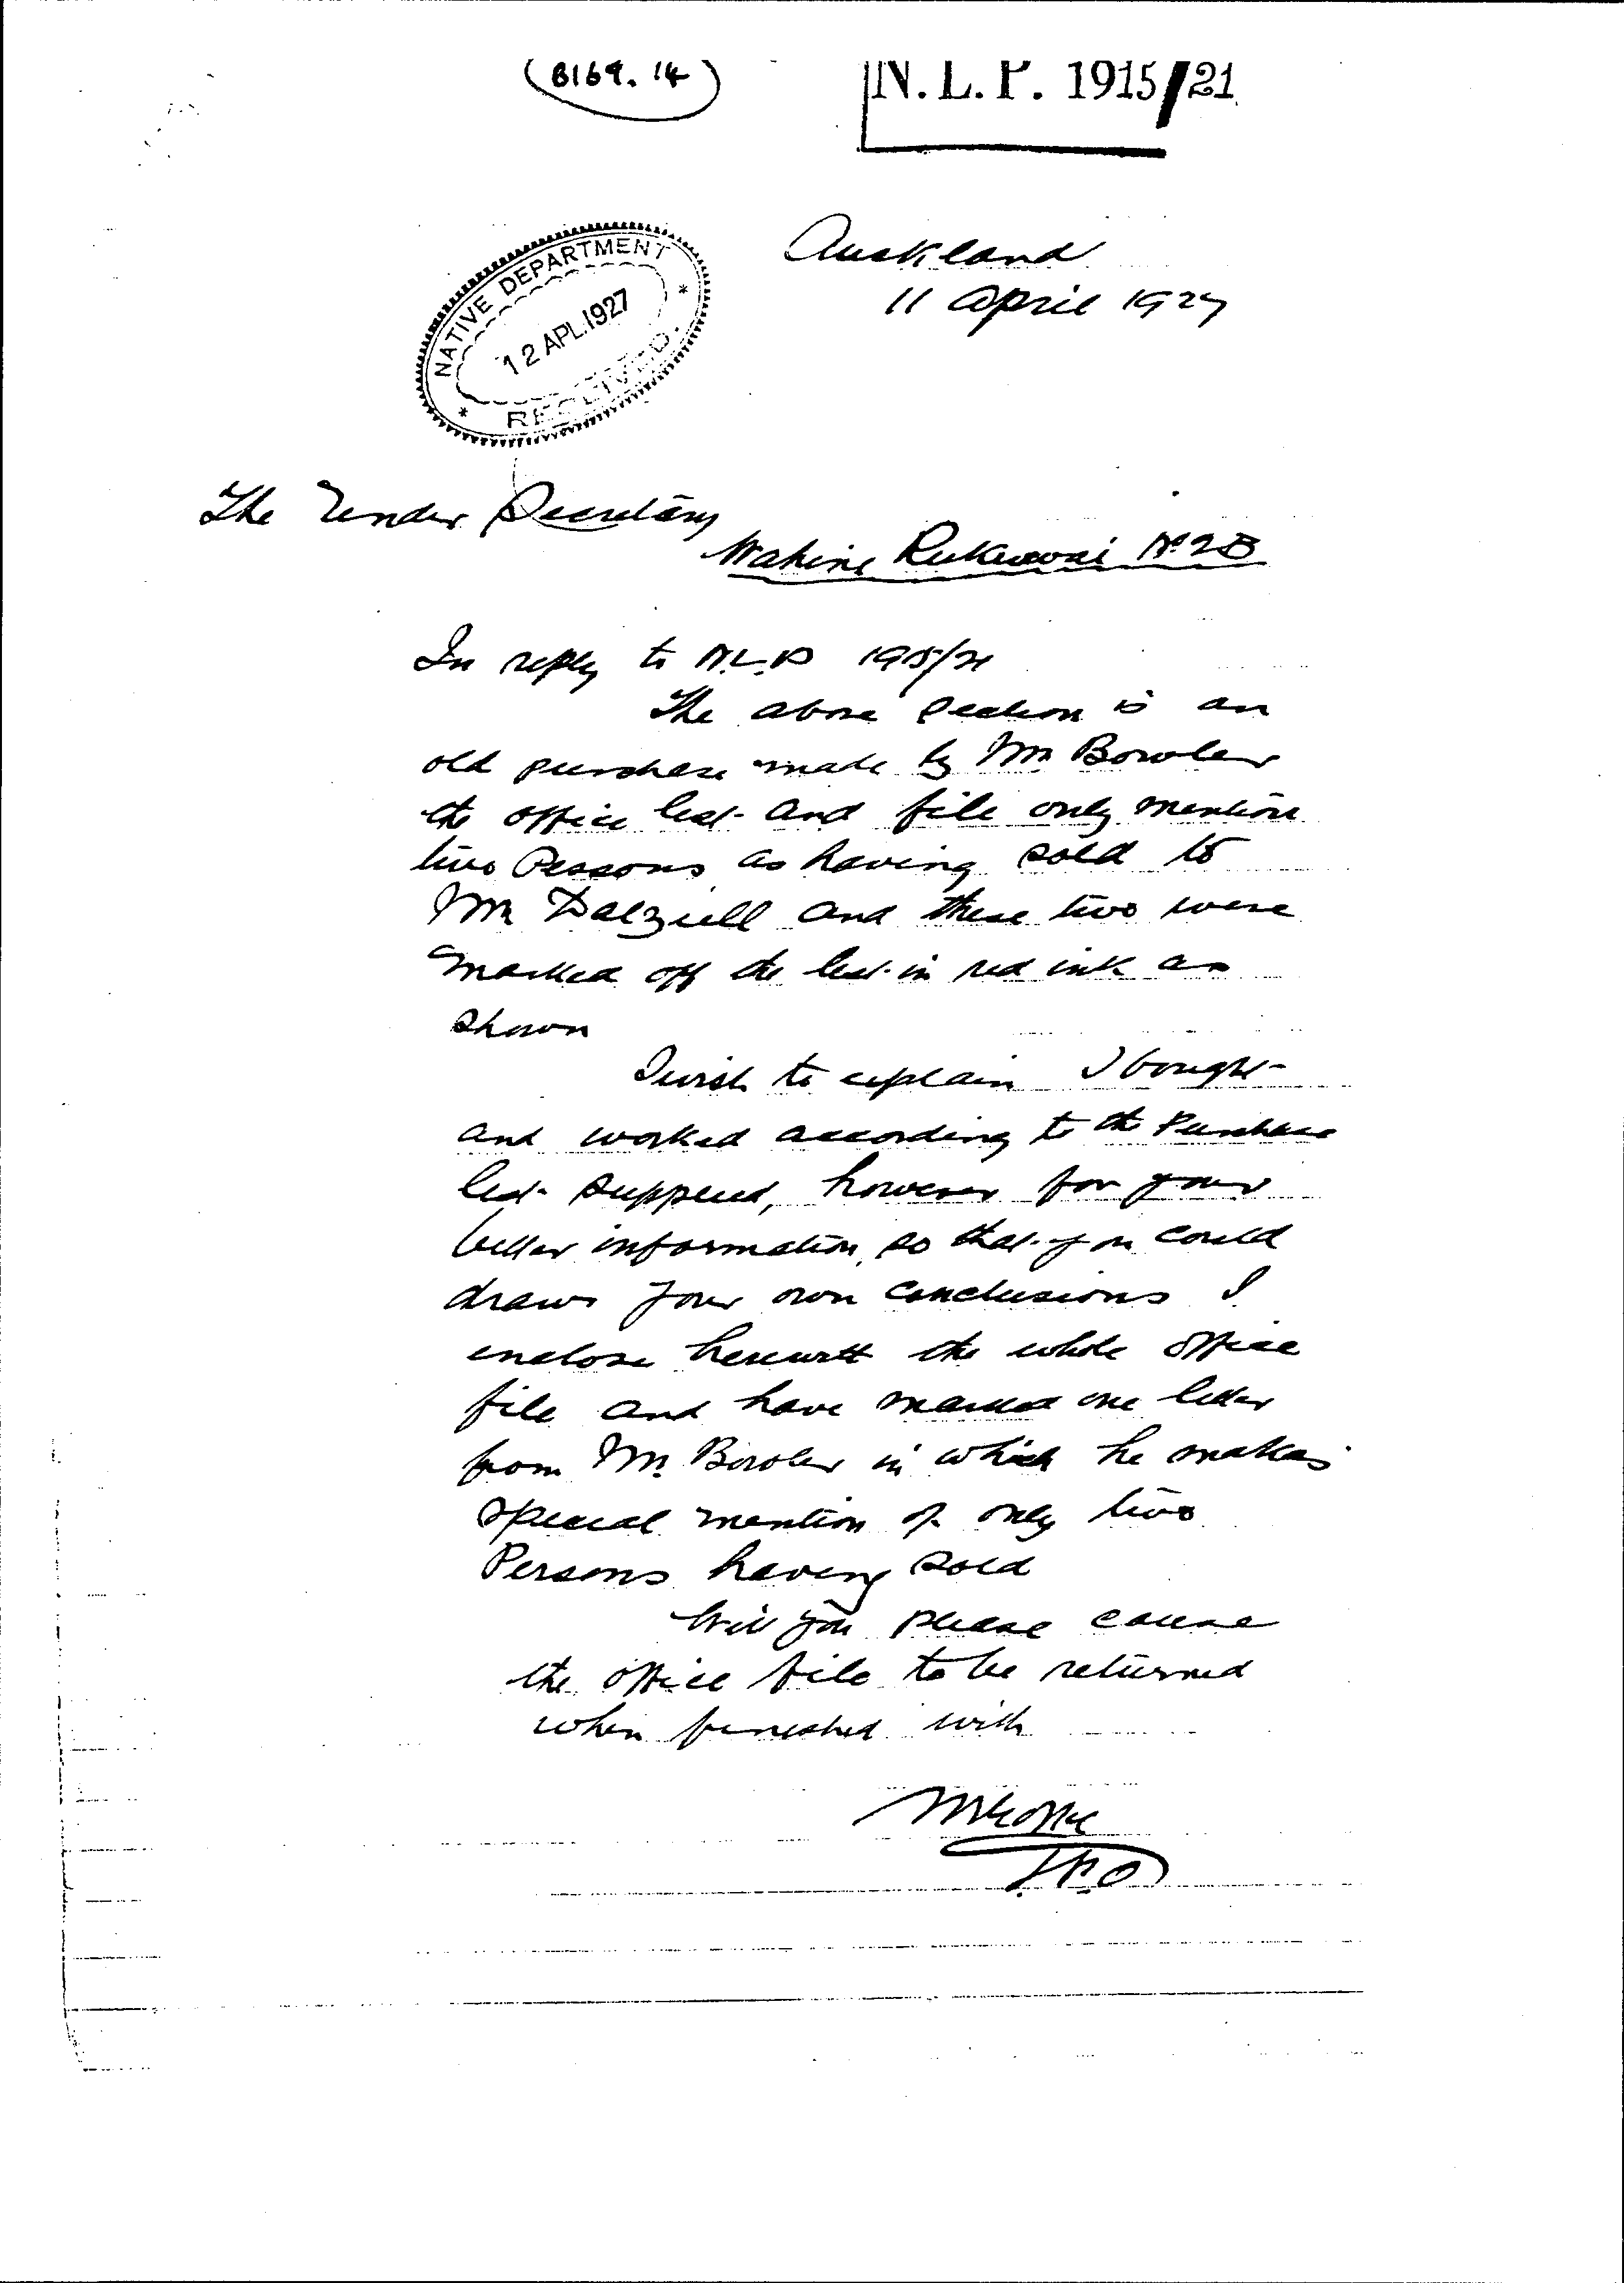 (B169. 14)
N. L. P. 1915/21
Auckland
11 April 1927
NATIVE DEPARTMENT
12 APL.1927
RECEIVED.
The Under Secretary
Wahine Rukuwai No 2B
In reply to N.L.P 1915/21
The above Section is an
old purchase made by Mr Bowler
the office list and file only mention
two Persons as having sold to
Mr Dalziell and these two were
marked off the list in red ink as
shown
I wish to explain I bought
and worked according to the Purchase
list supplied, however for your
better information, so that you could
draw your own conclusions I
enclose herewith the whole office
file and have marked one letter
from Mr Bowler in which he makes
special mention of only two
Persons having sold
Will you please cause
the office file to be returned
when finished with